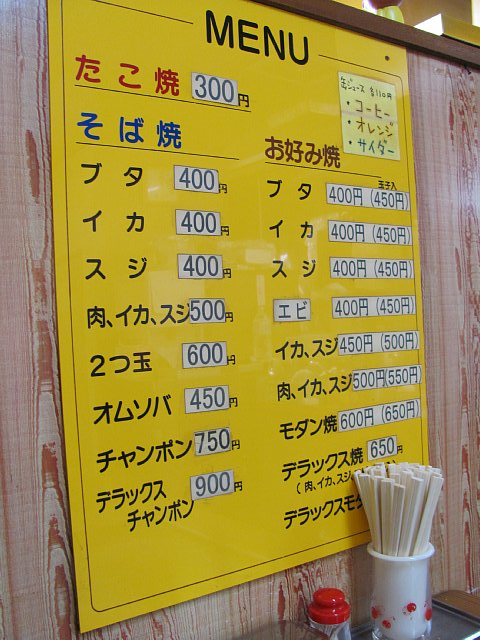 MENU
たこ焼 300円
そば焼
ブタ 400円
イカ 400円
スジ 400円
肉、イカ、スジ 500円
2つ玉 600円
オムソバ 450円
チャンポン 750円
デラックス
チャンポン 900円
缶ジュース 各110円
・コーヒー
・オレンジ
・サイダー
お好み焼
玉子入
ブタ 400円(450円)
イカ 400円(450円)
スジ 400円(450円)
エビ 400円(450円)
イカ、スジ 450円(500円)
肉、イカ、スジ 500円(550円)
モダン焼 600円(650円)
デラックス焼 650円
(肉、イカ、スジ
デラックスモダ